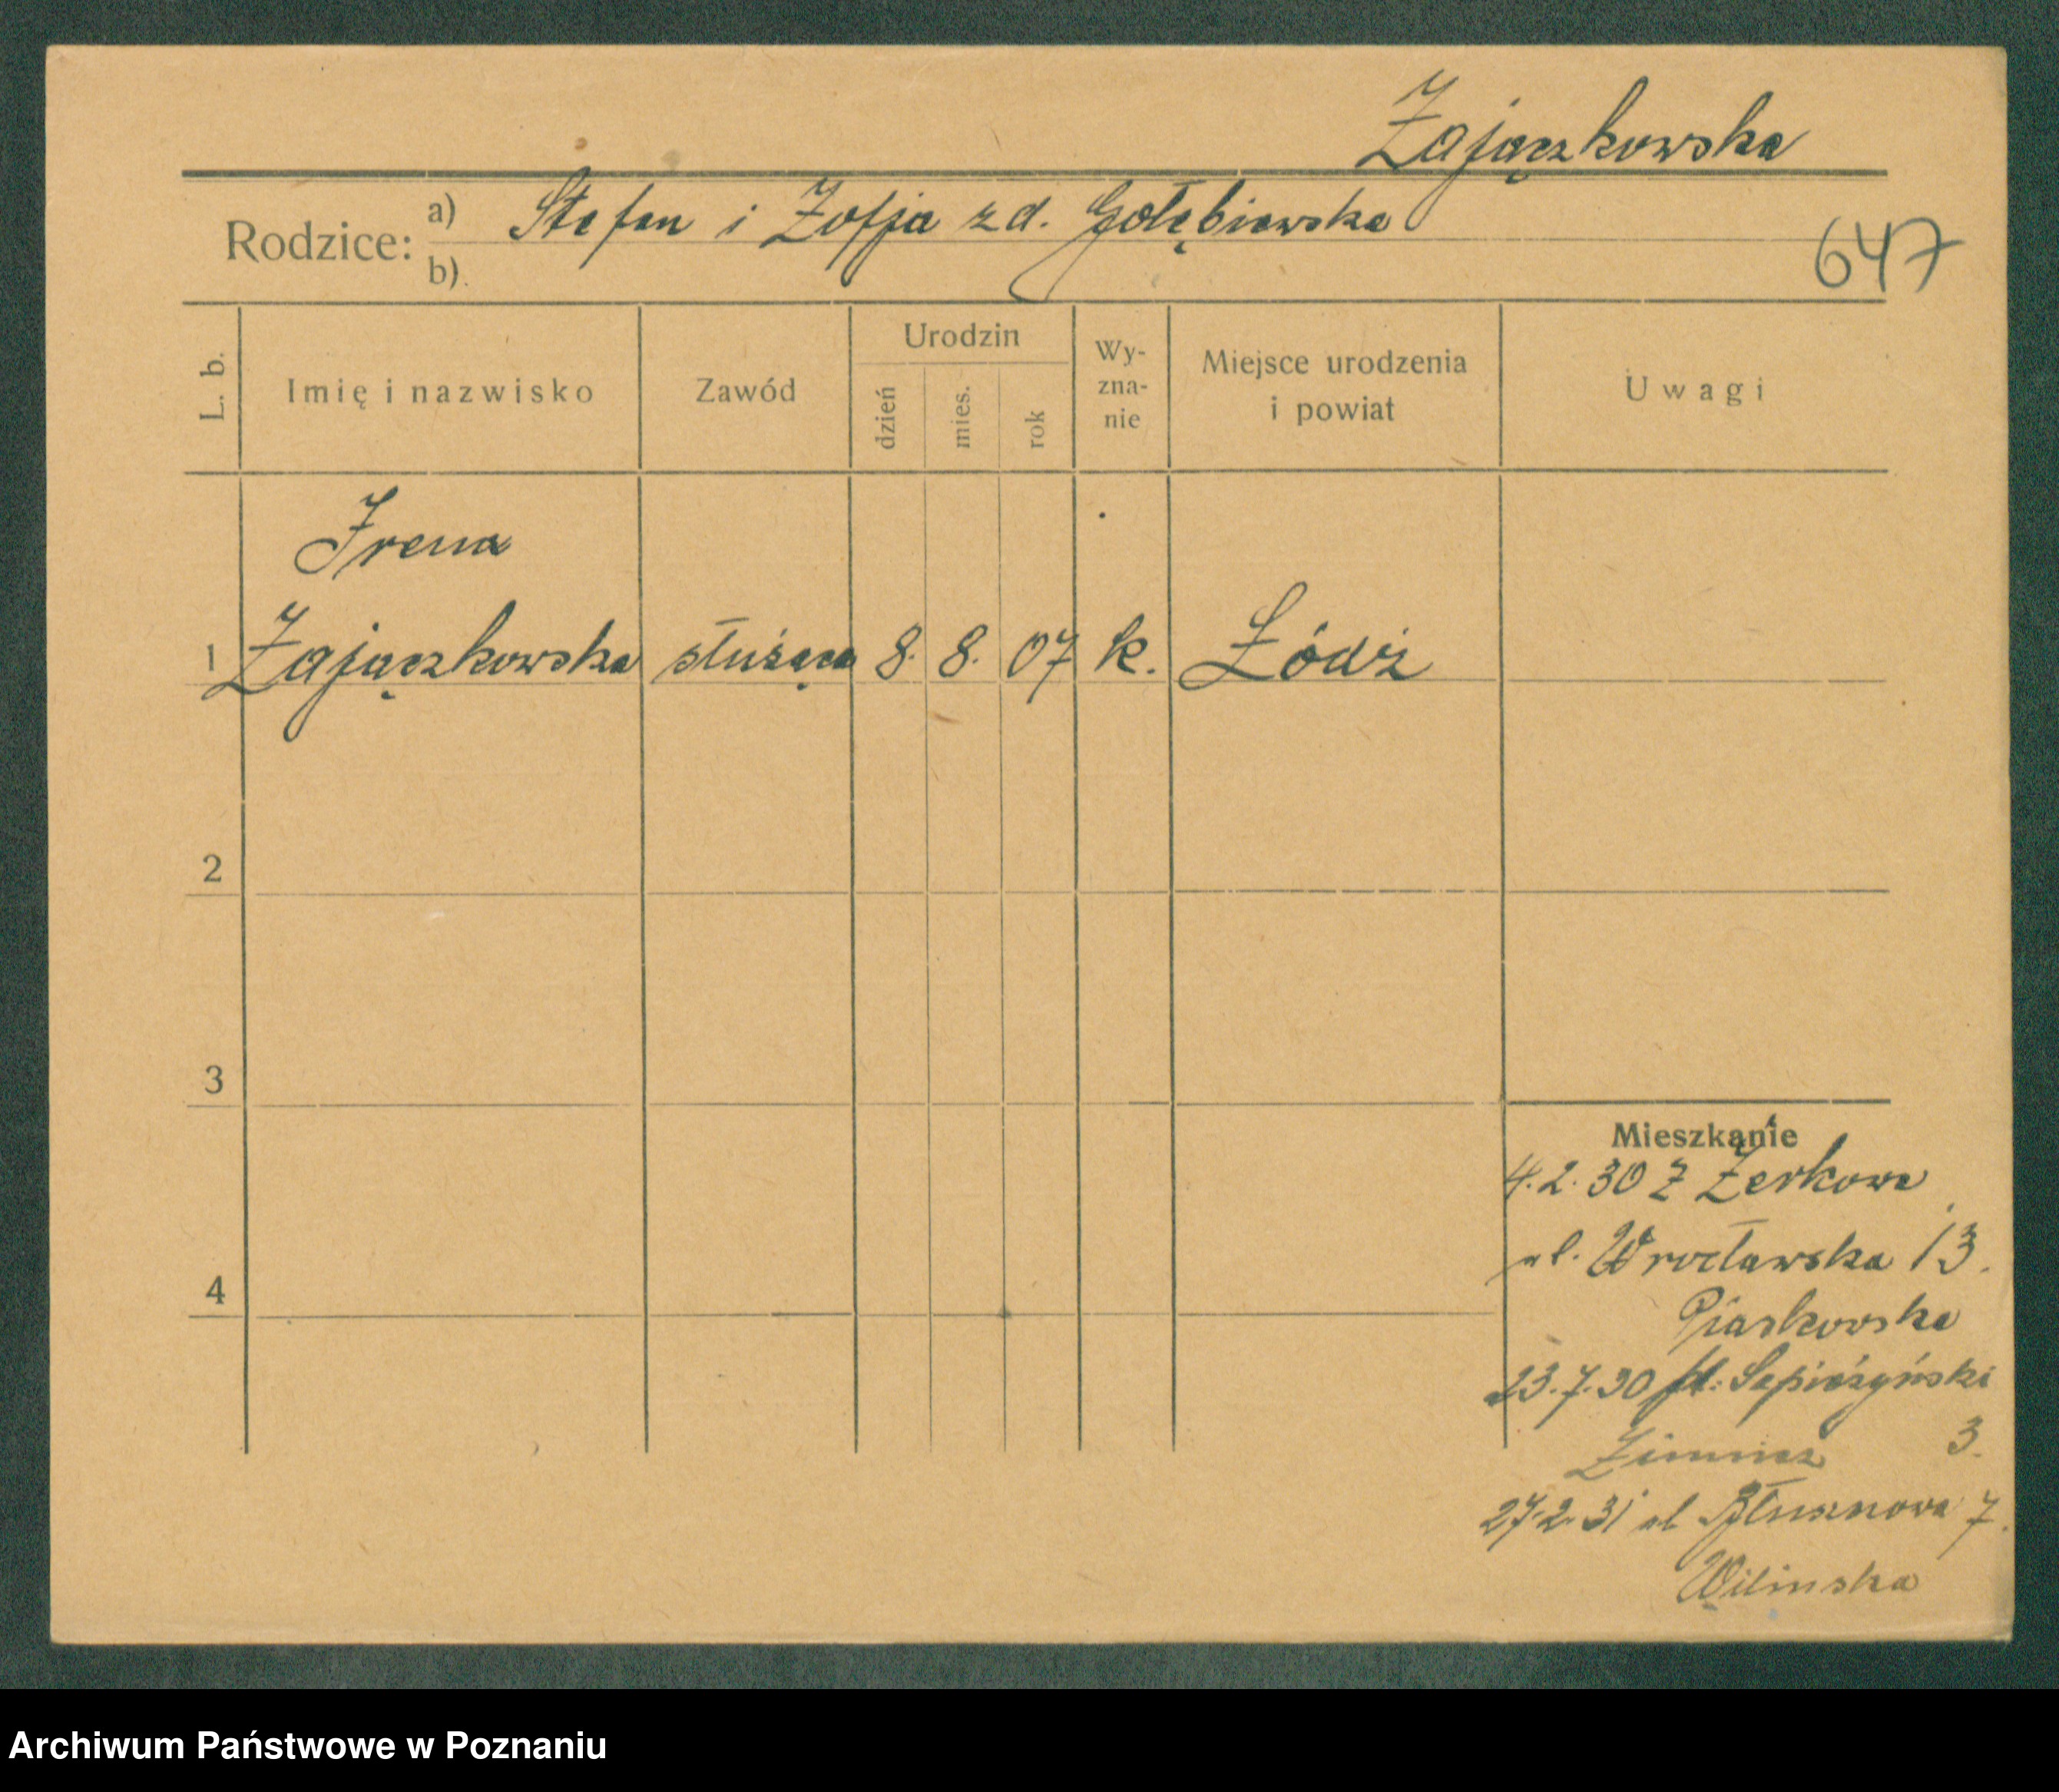 Zajączkowska
Rodzice: a) Stefan i Zofja z d. Gołębiewska
b)
647
L. b.
Imię i nazwisko
Zawód
Urodzin
dzień
mies.
rok
Wy-
zna-
nie
Miejsce urodzenia
i powiat
Uwagi
Irena
1 Zajączkowska służąca 8. 8. 07 k. Łódź
2
3
4
Mieszkanie
4.2.30 z Żerkowa
ul. Wrocławska 13.
Piaskowska
23.7.30 pl. Sapieżyński
3.
27.2.31 ul 7.
Wilinska
Archiwum Państwowe w Poznaniu